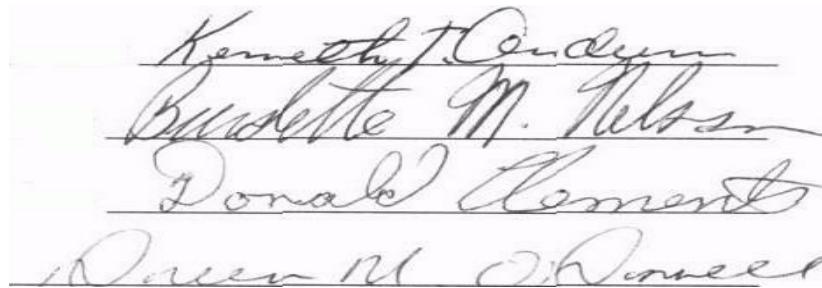 Kenneth T.
Burdette M. Nelson
Donald Clements
Doreen M. O'Donnell